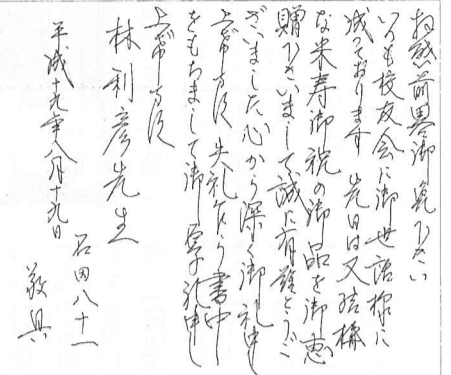 拝啓 前略御免下さい
いつも校友会に御世話様に
成っております 先日は又結構
な米寿御祝の御品を御恵
贈下さいまして誠に有難とうご
ざいました心から深く御礼申し
上げます 失礼ながら書中
をもちまして御 礼申し
上げます
林 利彦先生
平成十九年八月十九日
石田八十一
敬具